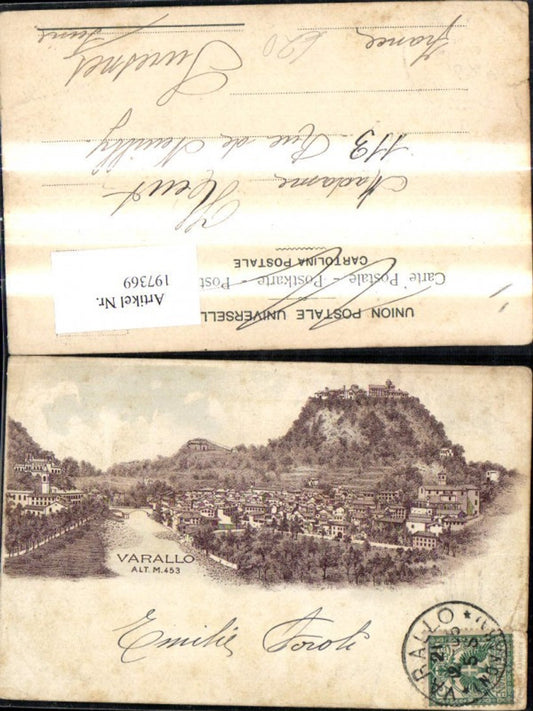 UNION POSTALE UNIVERSELL
Carte Postale - Postkarte - Post
CARTOLINA POSTALE
Artikel Nr.
197369
Madame
113 Rue de Neuilly
Suresnes
Seine
France
VARALLO
ALT. M. 453
Emilie
VARALLO